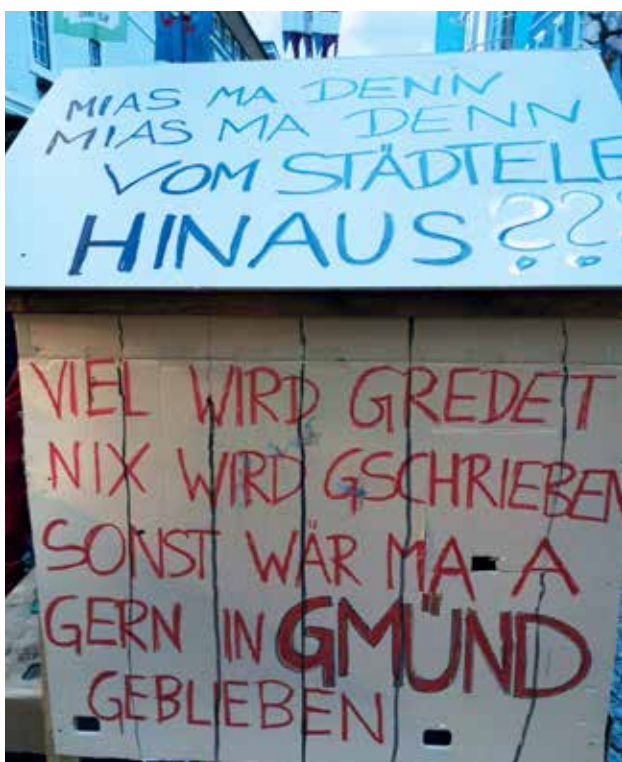 MIAS MA DENN
MIAS MA DENN
VOM STÄDTELE
HINAUS???
VIEL WIRD GREDET
NIX WIRD GSCHRIEBEN
SONST WÄR MA A
GERN IN GMÜND
GEBLIEBEN